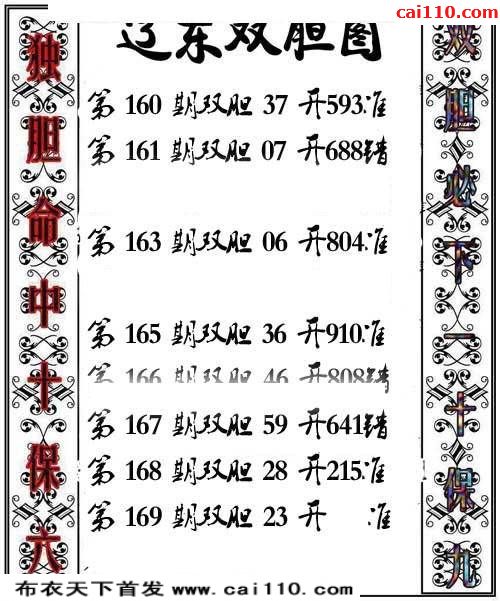 cai110.com
辽东双胆图
独胆命中十保六
第 160 期双胆 37 开593准
第 161 期双胆 07 开688错
第 163 期双胆 06 开804准
第 165 期双胆 36 开910准
第 166 期双胆 46 开808错
第 167 期双胆 59 开641错
第 168 期双胆 28 开215准
第 169 期双胆 23 开 准
双胆必下一十保九
布衣天下首发 www.cai110.com